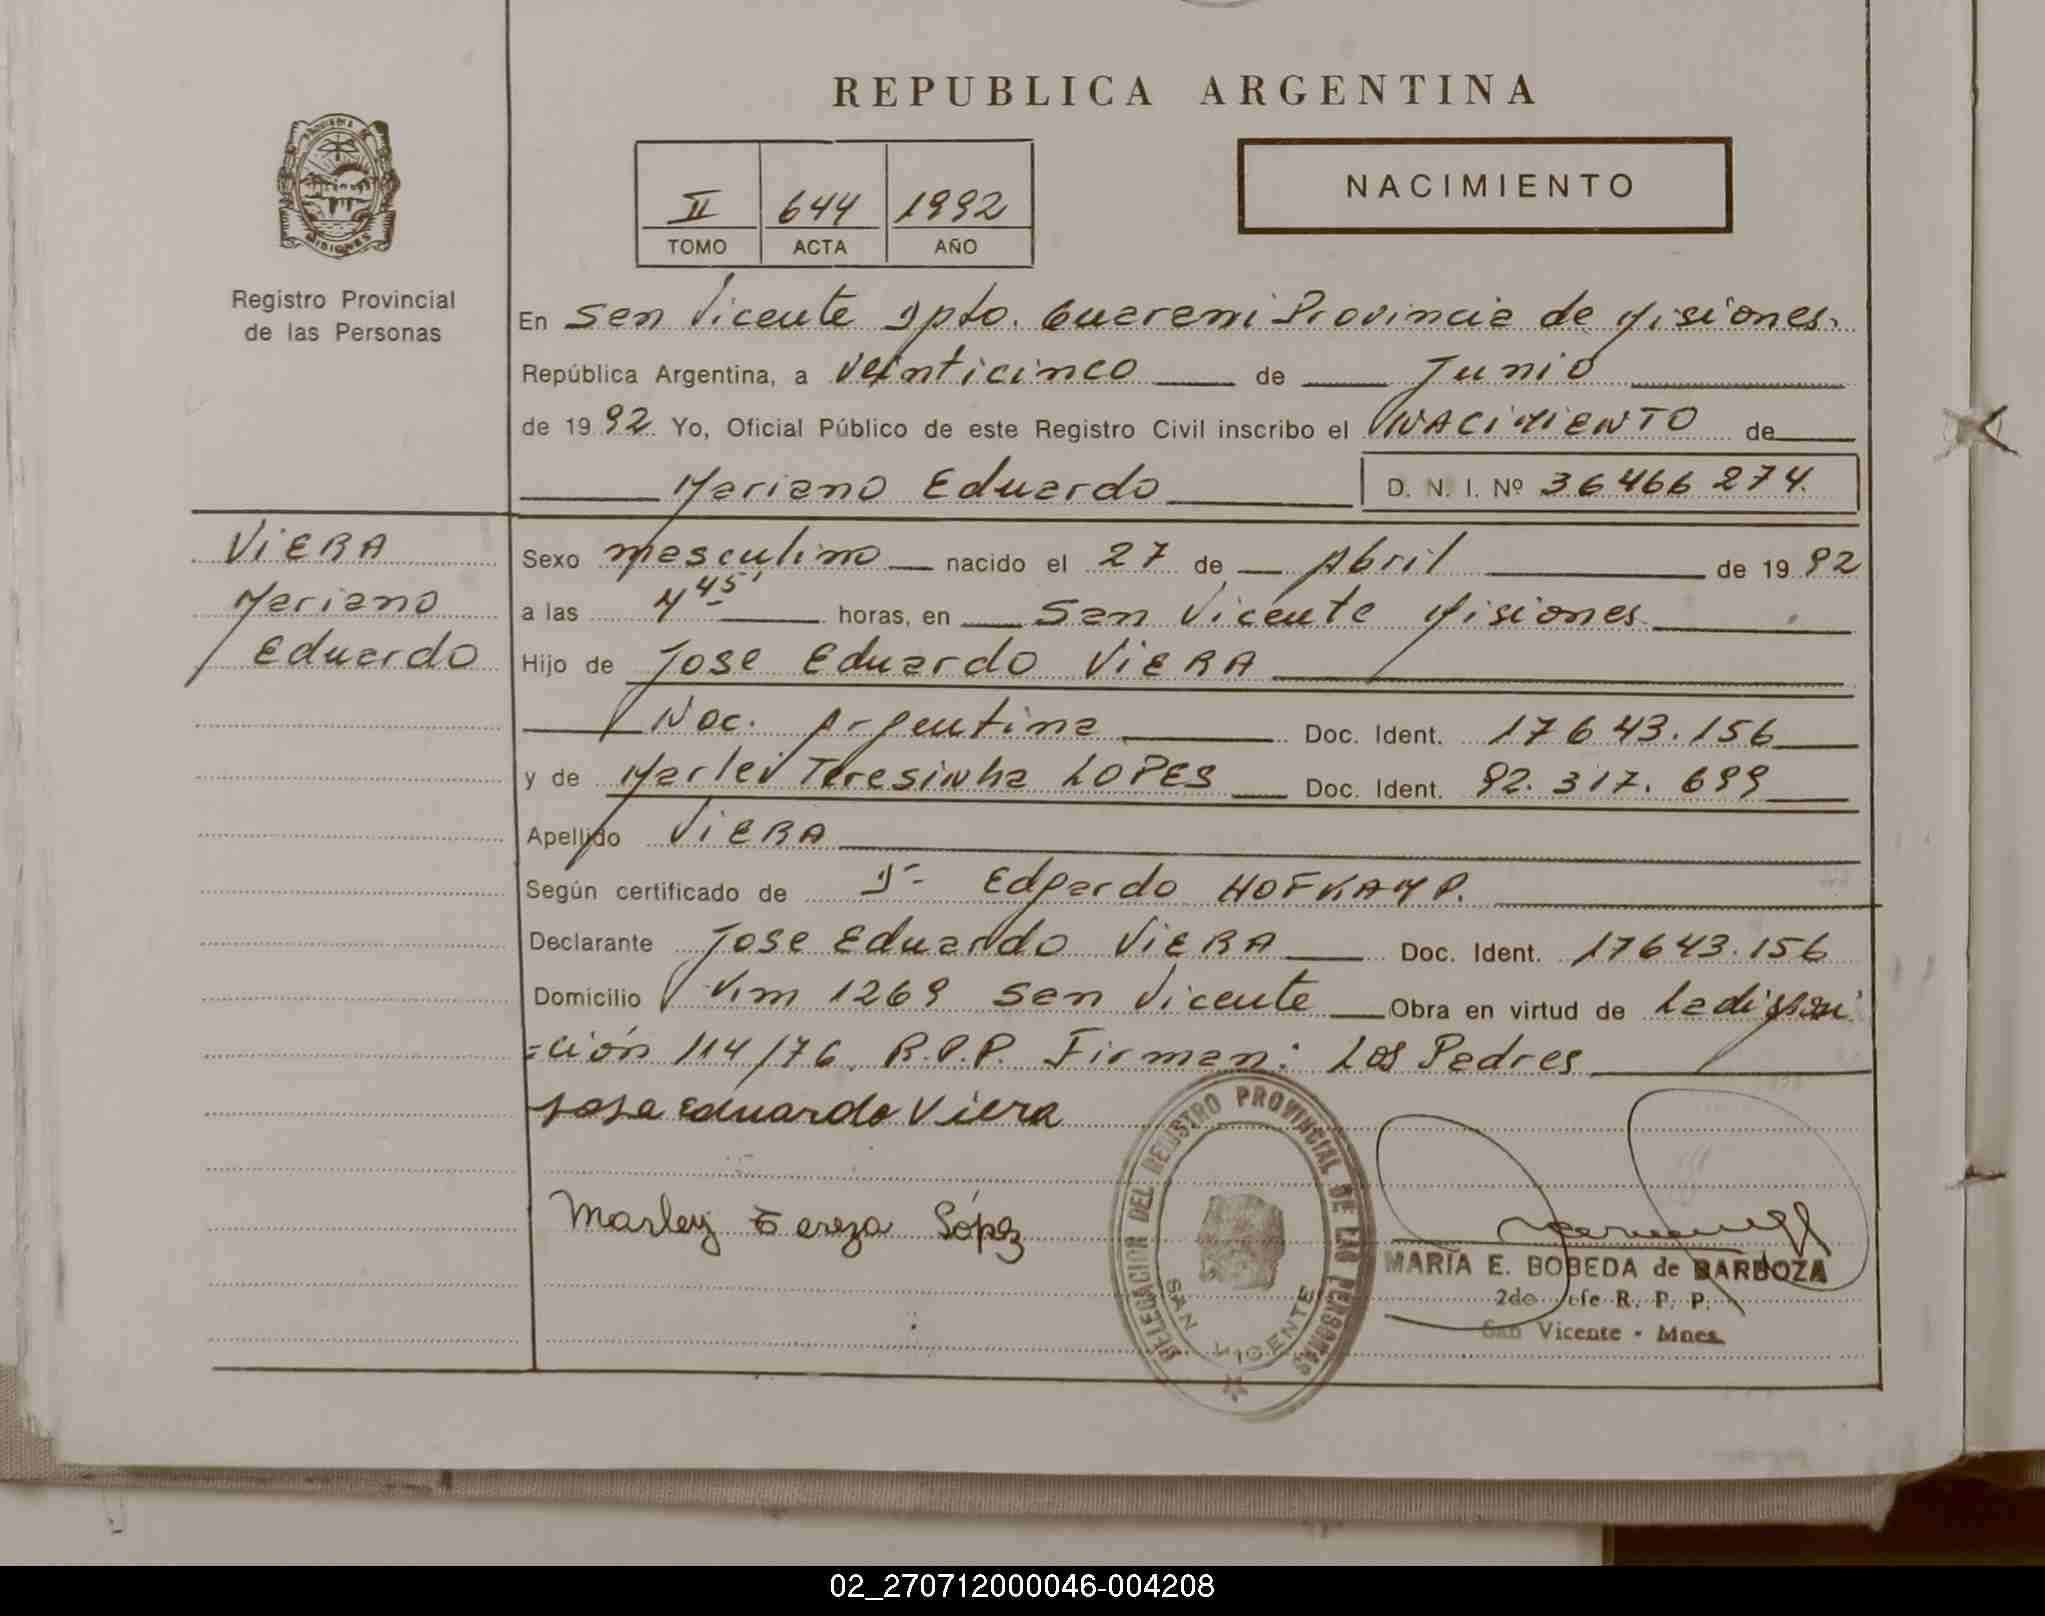 REPUBLICA ARGENTINA
PROVINCIA DE
MISIONES
Registro Provincial
de las Personas
II 644 1992
TOMO ACTA AÑO
NACIMIENTO
En San Vicente Dpto. Guarani Provincia de Misiones.
República Argentina, a Veinticinco de Junio
de 1992 Yo, Oficial Público de este Registro Civil inscribo el NACIMIENTO de
Mariano Eduardo D. N. I. Nº 36466274.
VIERA
Mariano
Eduardo
Sexo masculino nacido el 27 de Abril de 1992
a las 4 45' horas, en San Vicente Misiones
Hijo de Jose Eduardo VIERA
Nac. Argentina Doc. Ident. 17643.156
y de Marlei Teresinha LOPES Doc. Ident. 92.317.699
Apellido VIERA
Según certificado de Dr- Edgardo HOFKAMP.
Declarante Jose Eduardo VIERA Doc. Ident. 17643.156
Domicilio Km 1269 San Vicente Obra en virtud de
=ción 114/76. R.P.P. Firman: Los Padres
Jose Eduardo Viera
Marley Tereza López
DELEGACION DEL REGISTRO PROVINCIAL DE LAS PERSONAS
SAN VICENTE
MARÍA E. BOBEDA de BARBOZA
2do Jefe R. P. P.
San Vicente - Mnes.
02_270712000046-004208